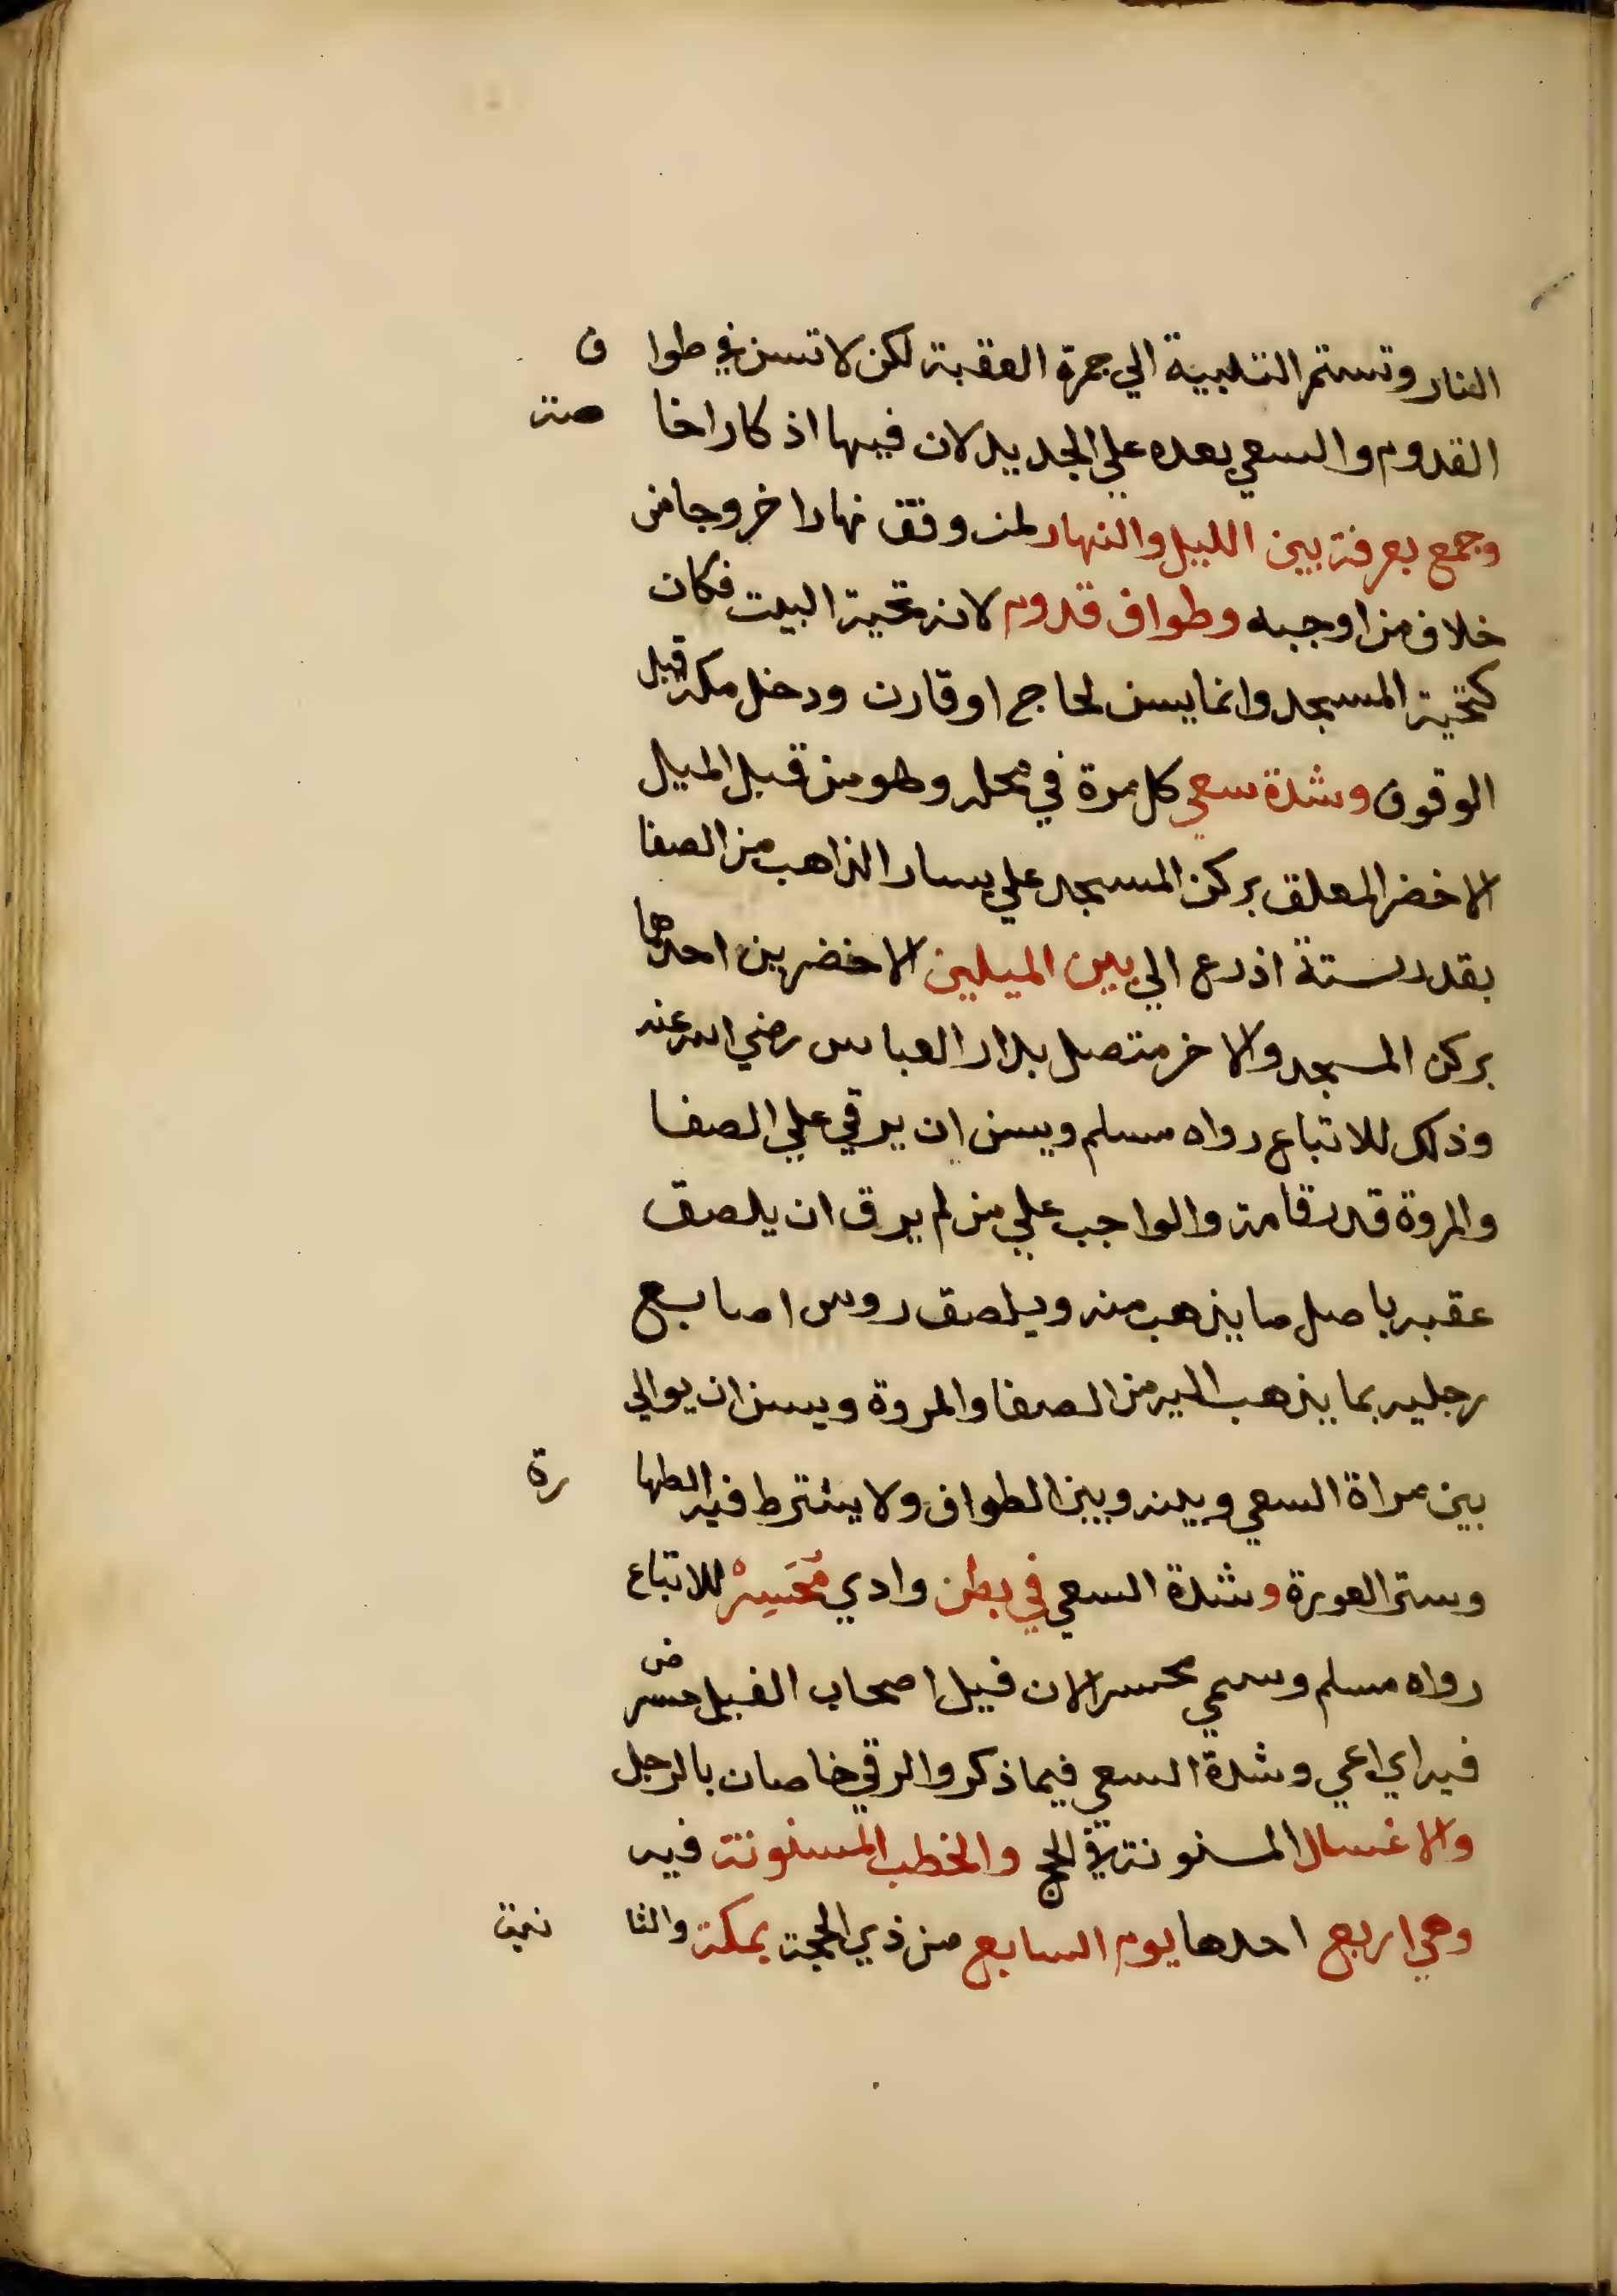 النار وتستمر التلبية الي جمرة العقبة لكن لا تسن في طوا ف
القدوم والسعي بعده علي الجديد لان فيها اذكارا خا صة
وجمع بعرفة بين الليل والنهار لمن وقف نهارا خروجا من
خلاف من اوجبه وطواف قدوم لانه تحية البيت فكان
كتحية المسجد وانما يسن لحاج او قارن ودخل مكة قبل
الوقوف وشدة سعي كل مرة في محله وهو من قبل الميل
الاخضر المعلق بركن المسجد علي يسار الذاهب من الصفا
بقدر ستة اذرع الي بين الميلين الاخضرين احدهما
بركن المسجد والاخر متصل بدار العباس رضي الله عنه
وذلك للاتباع رواه مسلم ويسن ان يرقي علي الصفا
والمروة قدر قامة والواجب علي من لم يرق ان يلصق
عقبه باصل ما يذهب منه ويلصق روس اصابع
رجليه بما يذهب اليه من الصفا والمروة ويسن ان يوالي
بين مراة السعي وبينه وبين الطواف ولا يشترط فيه الطها رة
وستر العورة وشدة السعي في بطن وادي مُحَسِرْ للاتباع
رواه مسلم وسمي محسرا لان فيل اصحاب الفيل حسر
فيه اي اعي وشدة السعي فيما ذكر والرقي خاصان بالرجل
والاغسال المسنونة في الحج والخطب المسنونة فيه
وهي اربع احدها يوم السابع من ذي الحجة بمكة والثا نية